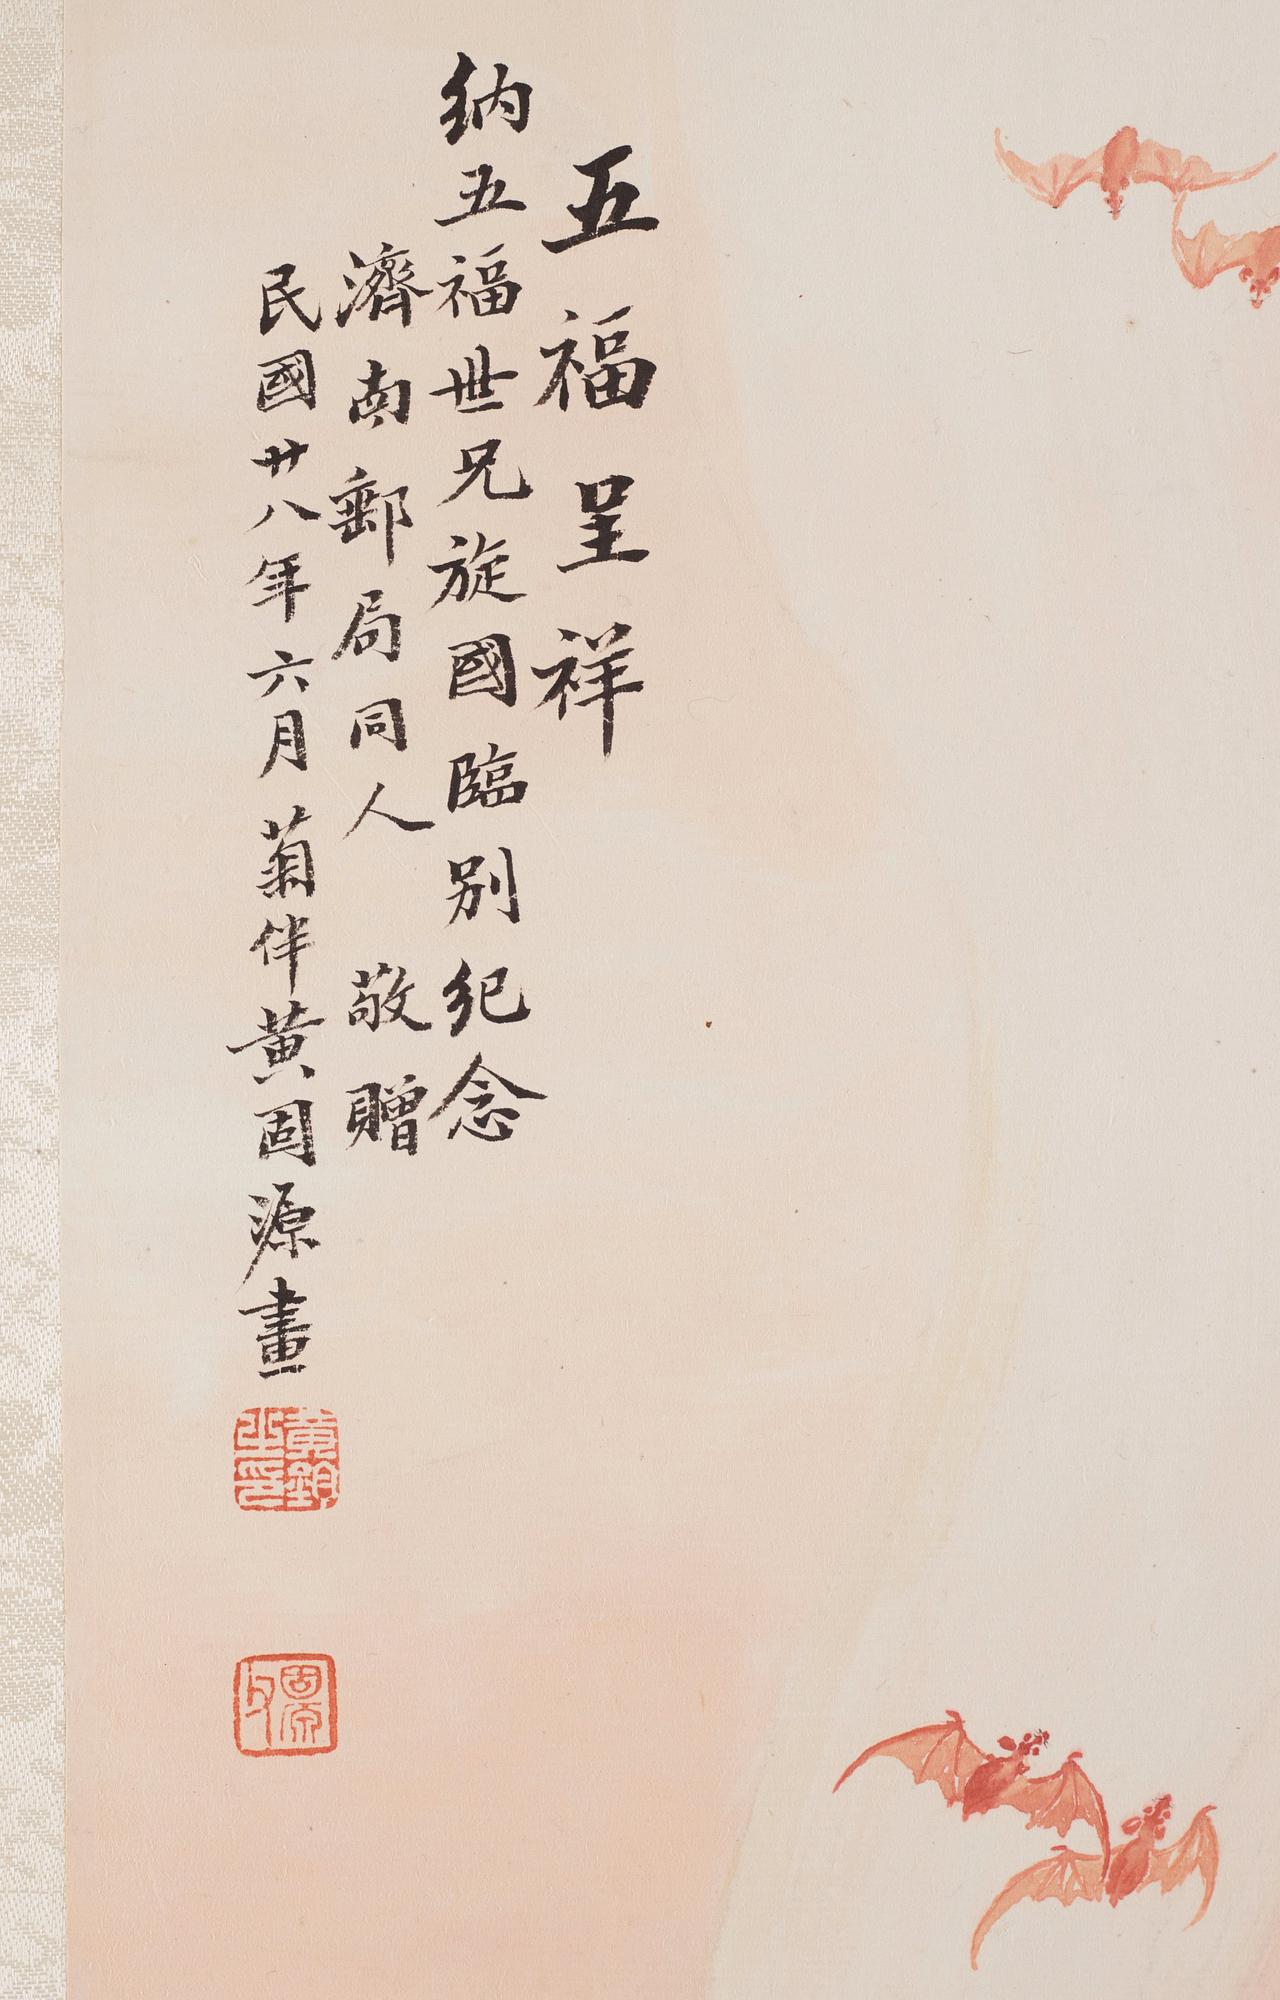 五福呈祥
納五福世兄旋國臨別紀念
濟南郵局同人 敬贈
民國廿八年六月菊伴黄固源畫